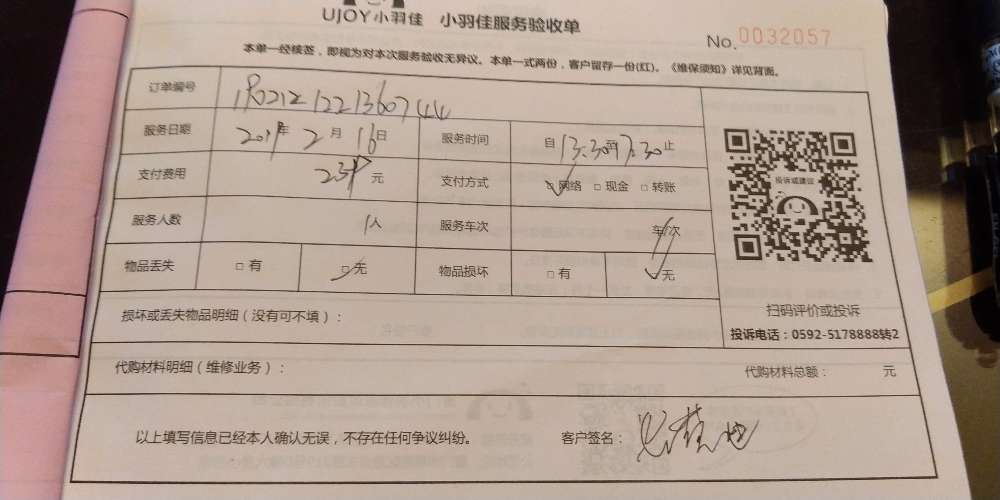 UJOY小羽佳 小羽佳服务验收单
No. 0032057
本单一经核签，即视为对本次服务验收无异议。本单一式两份，客户留存一份(红)。《维保须知》详见背面。
订单编号
服务日期 年 2 月 16 日 服务时间 自 13:30 到 17:30 止
支付费用 元 支付方式 网络 □ 现金 □ 转账
服务人数 1 人 服务车次 车/次
物品丢失 □ 有 □ 无 物品损坏 □ 有 无
投诉或建议
扫码评价或投诉
投诉电话：0592-5178888转2
损坏或丢失物品明细（没有可不填）：
代购材料明细（维修业务）： 代购材料总额： 元
以上填写信息已经本人确认无误，不存在任何争议纠纷。 客户签名：